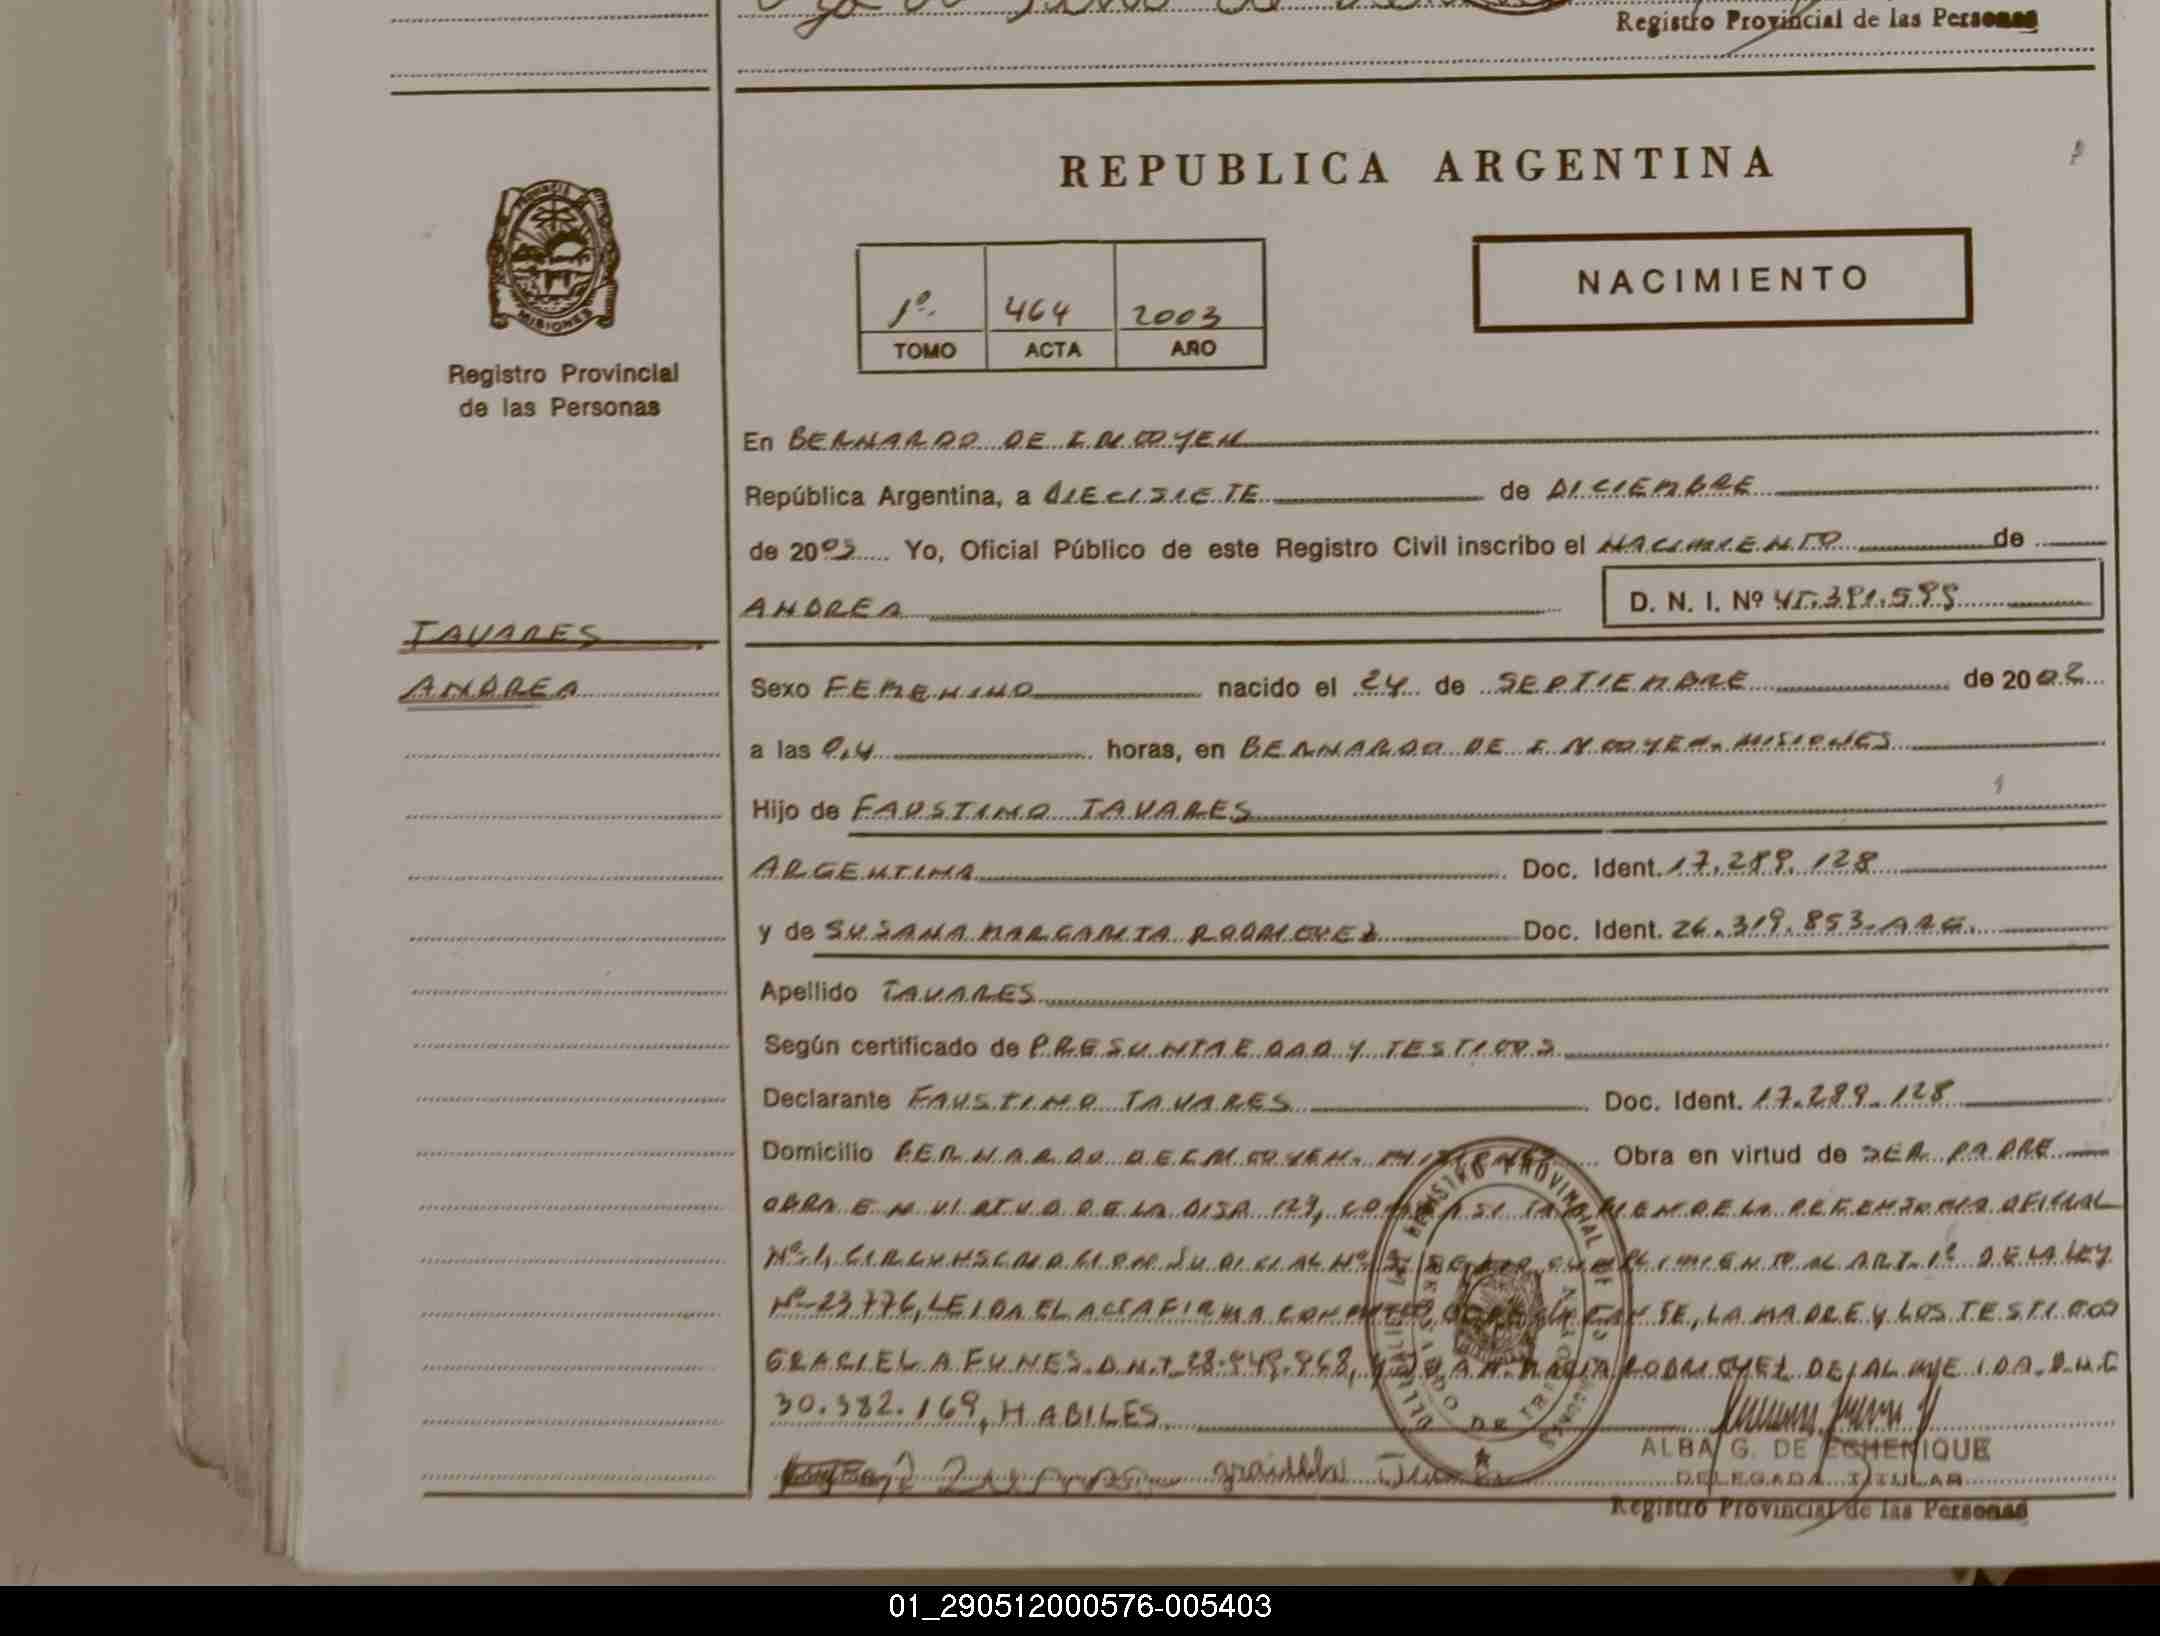 Registro Provincial de las Personas
REPUBLICA ARGENTINA
PROVINCIA DE
MISIONES
Registro Provincial
de las Personas
1º 464 2003
TOMO ACTA AÑO
NACIMIENTO
En BERNARDO DE IRIGOYEN
República Argentina, a DIECISIETE de DICIEMBRE
de 2003 Yo, Oficial Público de este Registro Civil inscribo el NACIMIENTO de
ANDREA D. N. I. Nº
TAVARES
ANDREA
Sexo FEMENINO nacido el 24 de SEPTIEMBRE de 2002
a las horas, en BERNARDO DE IRIGOYEN. MISIONES
Hijo de FAUSTINO TAVARES
ARGENTINA Doc. Ident. 17.289.128
y de SUSANA MARGARITA RODRIGUEZ Doc. Ident. 26.319.853-ARG.
Apellido TAVARES
Según certificado de PRESUNTA EDAD Y TESTIGOS
Declarante FAUSTINO TAVARES Doc. Ident. 17.289.128
Domicilio BERNARDO DE IRIGOYEN. MISIONES Obra en virtud de SER PADRE
OBRA EN VIRTUD DE LA DISP. COMO ASI TAMBIEN DE LA DEFENSORIA OFICIAL
Nº 1, CIRCUNSCRIPCION JUDICIAL Nº DANDO CUMPLIMIENTO AL ART. 1º DE LA LEY
Nº 23776, LEIDA EL ACTA FIRMA CONMIGO DECLARANTE, LA MADRE Y LOS TESTIGOS
GRACIELA FUNES D.N.I. RODRIGUEZ DE ALMEIDA. D.N.I
30.382.169, HABILES
graciela Funes
ALBA G. DE ECHENIQUE
DELEGADA TITULAR
Registro Provincial de las Personas
01_290512000576-005403